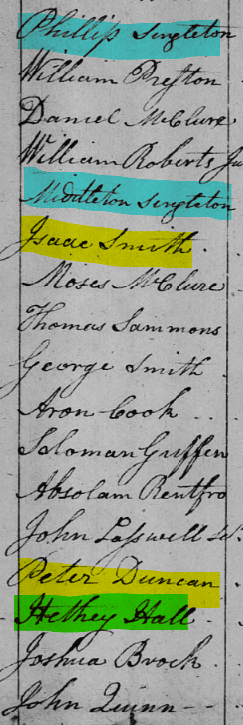 Phillip Singleton
William Preston
Daniel McClure
William Roberts Ju
Middleton Singleton
Isaac Smith
Moses McClure
Thomas Sammons
George Smith
Aron Cook
Soloman Griffen
Absolam Rentfro
John Lasswell
Peter Duncan
Hethey Hall
Joshua Brock
John Quinn